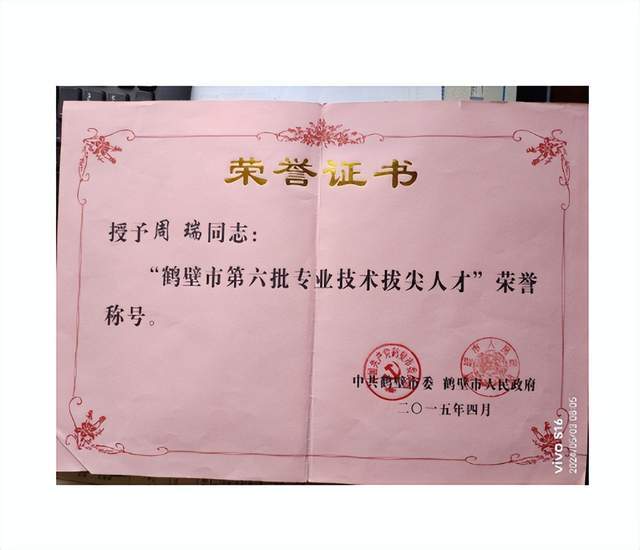 荣誉证书
授予周 瑞同志：
“鹤壁市第六批专业技术拔尖人才”荣誉
称号。
中共鹤壁市委 鹤壁市人民政府
二〇一五年四月
vivo S16
2024/05/03 08:05